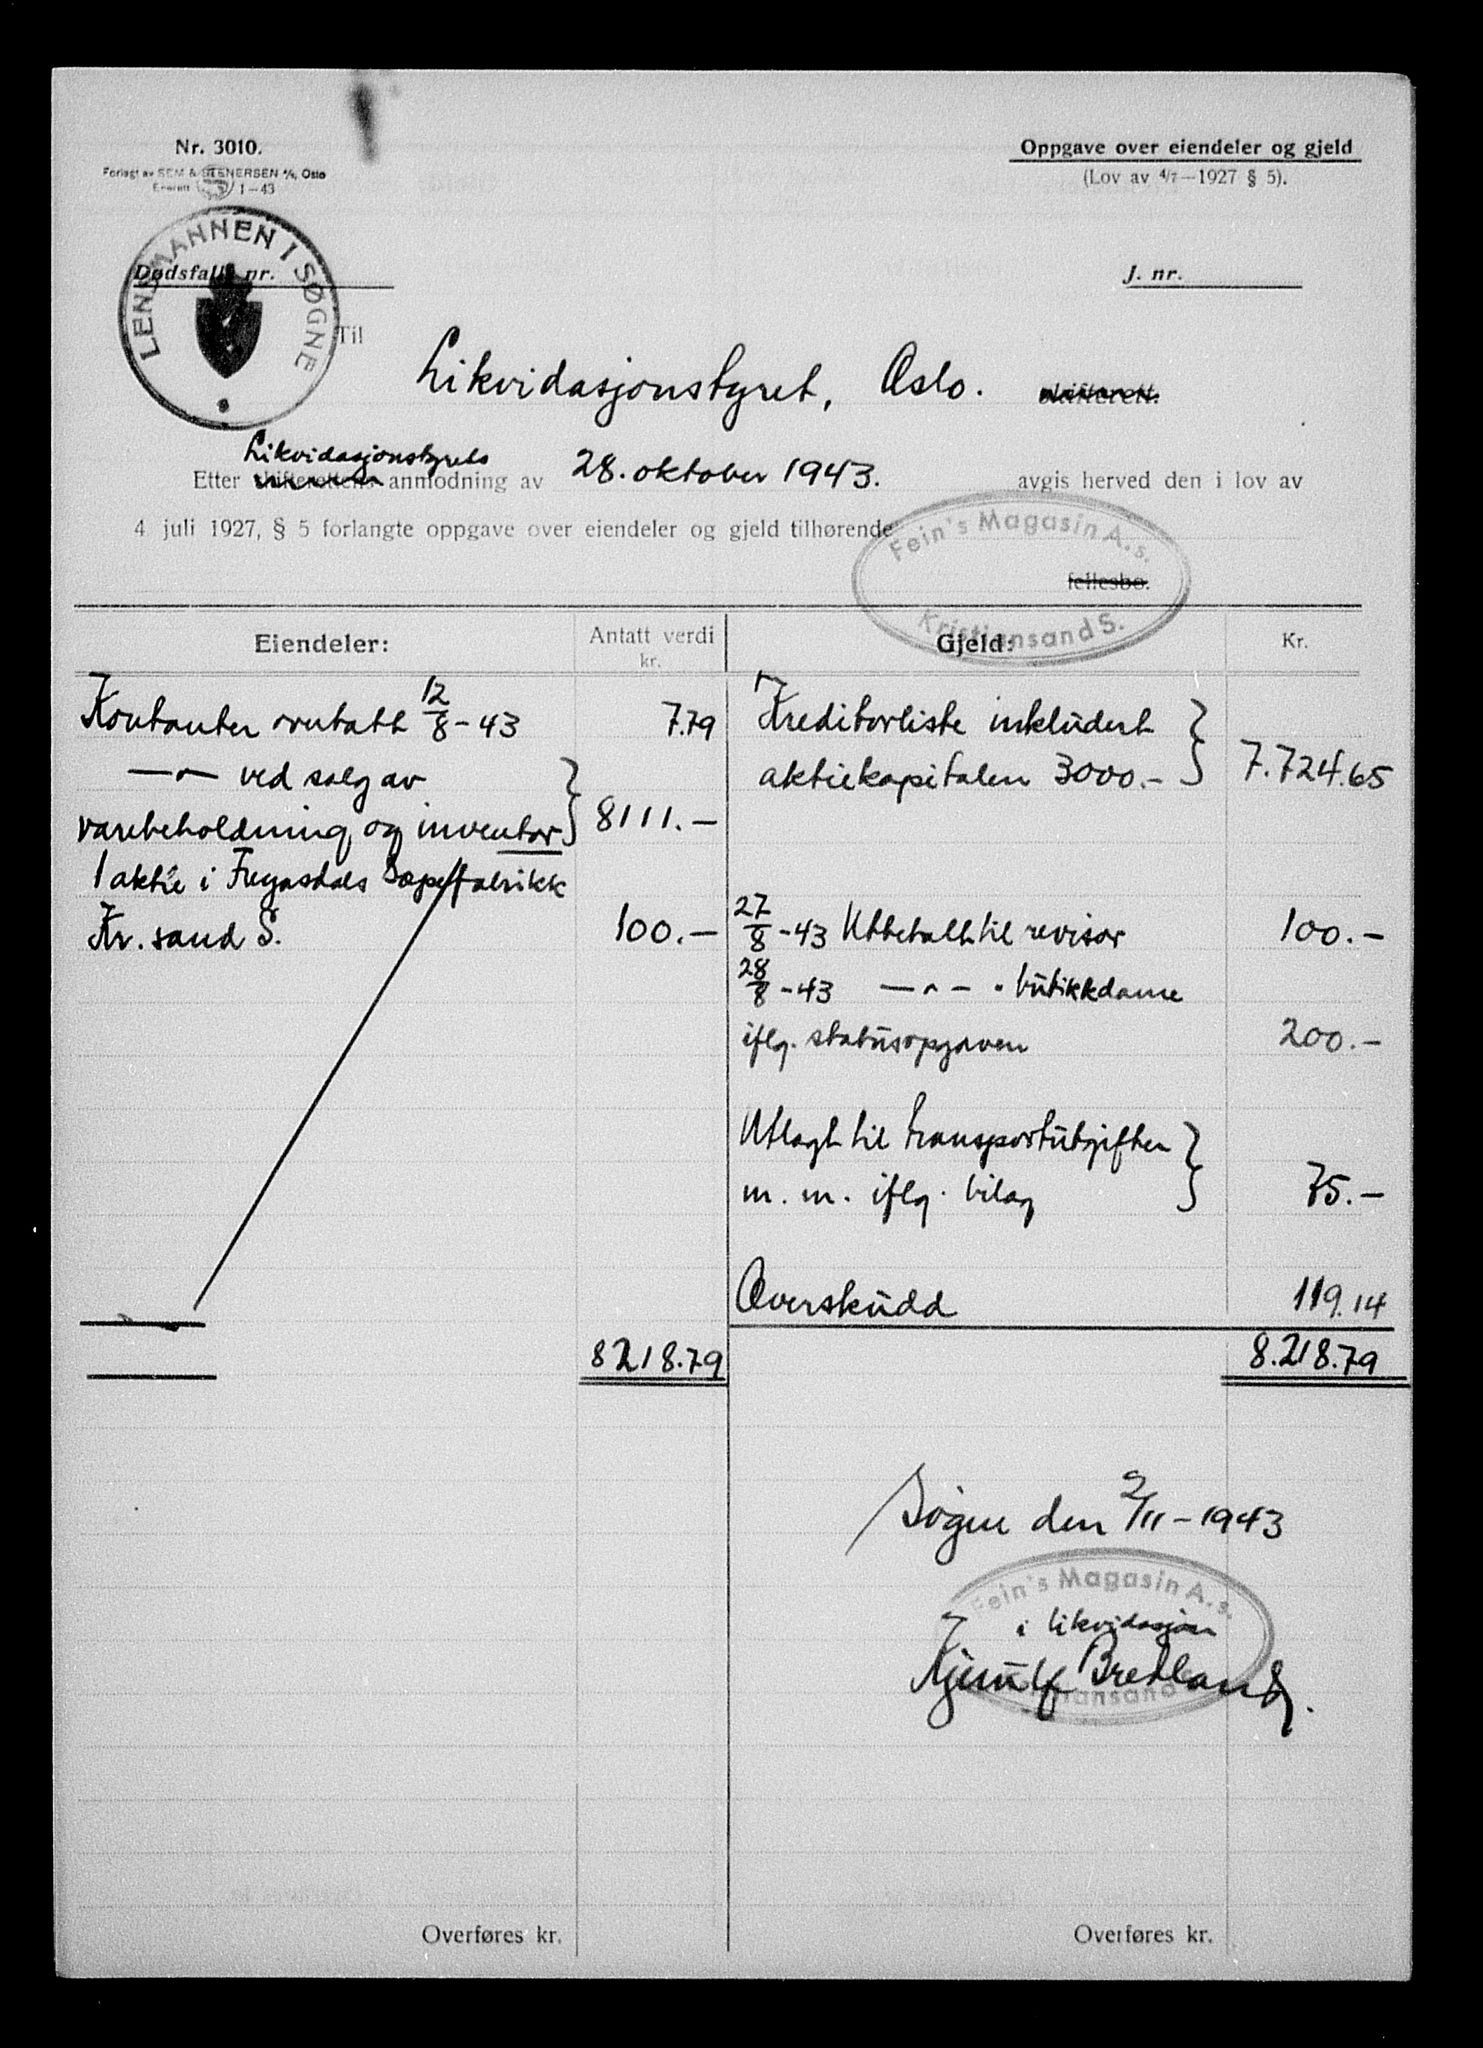 Nr. 3010.
Forlagt av SEM & STENERSEN A/S, Oslo
Enerett 1-43
Oppgave over eiendeler og gjeld
(Lov av 4/7-1927 § 5).
LENSMANNEN I SØGNE
Dødsfall nr.
J. nr.
Til
Likvidasjonstyret, Oslo. skifterett.
Likvidasjonstyrets
Etter skifterettens anmodning av 28. oktober 1943. avgis herved den i lov av
4 juli 1927, § 5 forlangte oppgave over eiendeler og gjeld tilhørende
Fein's Magasin A.s.
fellesbo.
Kristiansand S.
Eiendeler: Antatt verdi kr. Gjeld: Kr.
Kontanter mottatt 12/8-43 7.79
—"— ved salg av
varebeholdning og inventar 8111.—
1 aktie i Fregasdals Sæpefabrikk
Kr. sand S. 100.—
8218.79
Kreditorliste inkludert
aktiekapitalen 3000.— 7.724.65
27/8-43 Utbetalt til revisor 100.—
28/8-43 —"— " butikkdame
iflg. statusopgaven 200.—
Utlagt til transportutgifter
m. m. iflg. bilag 75.—
Overskudd 119.14
8.218.79
Søgne den 2/11-1943
Fein's Magasin A.s.
i likvidasjon
Kjerulf Bretland.
Kristiansand
Overføres kr. Overføres kr.